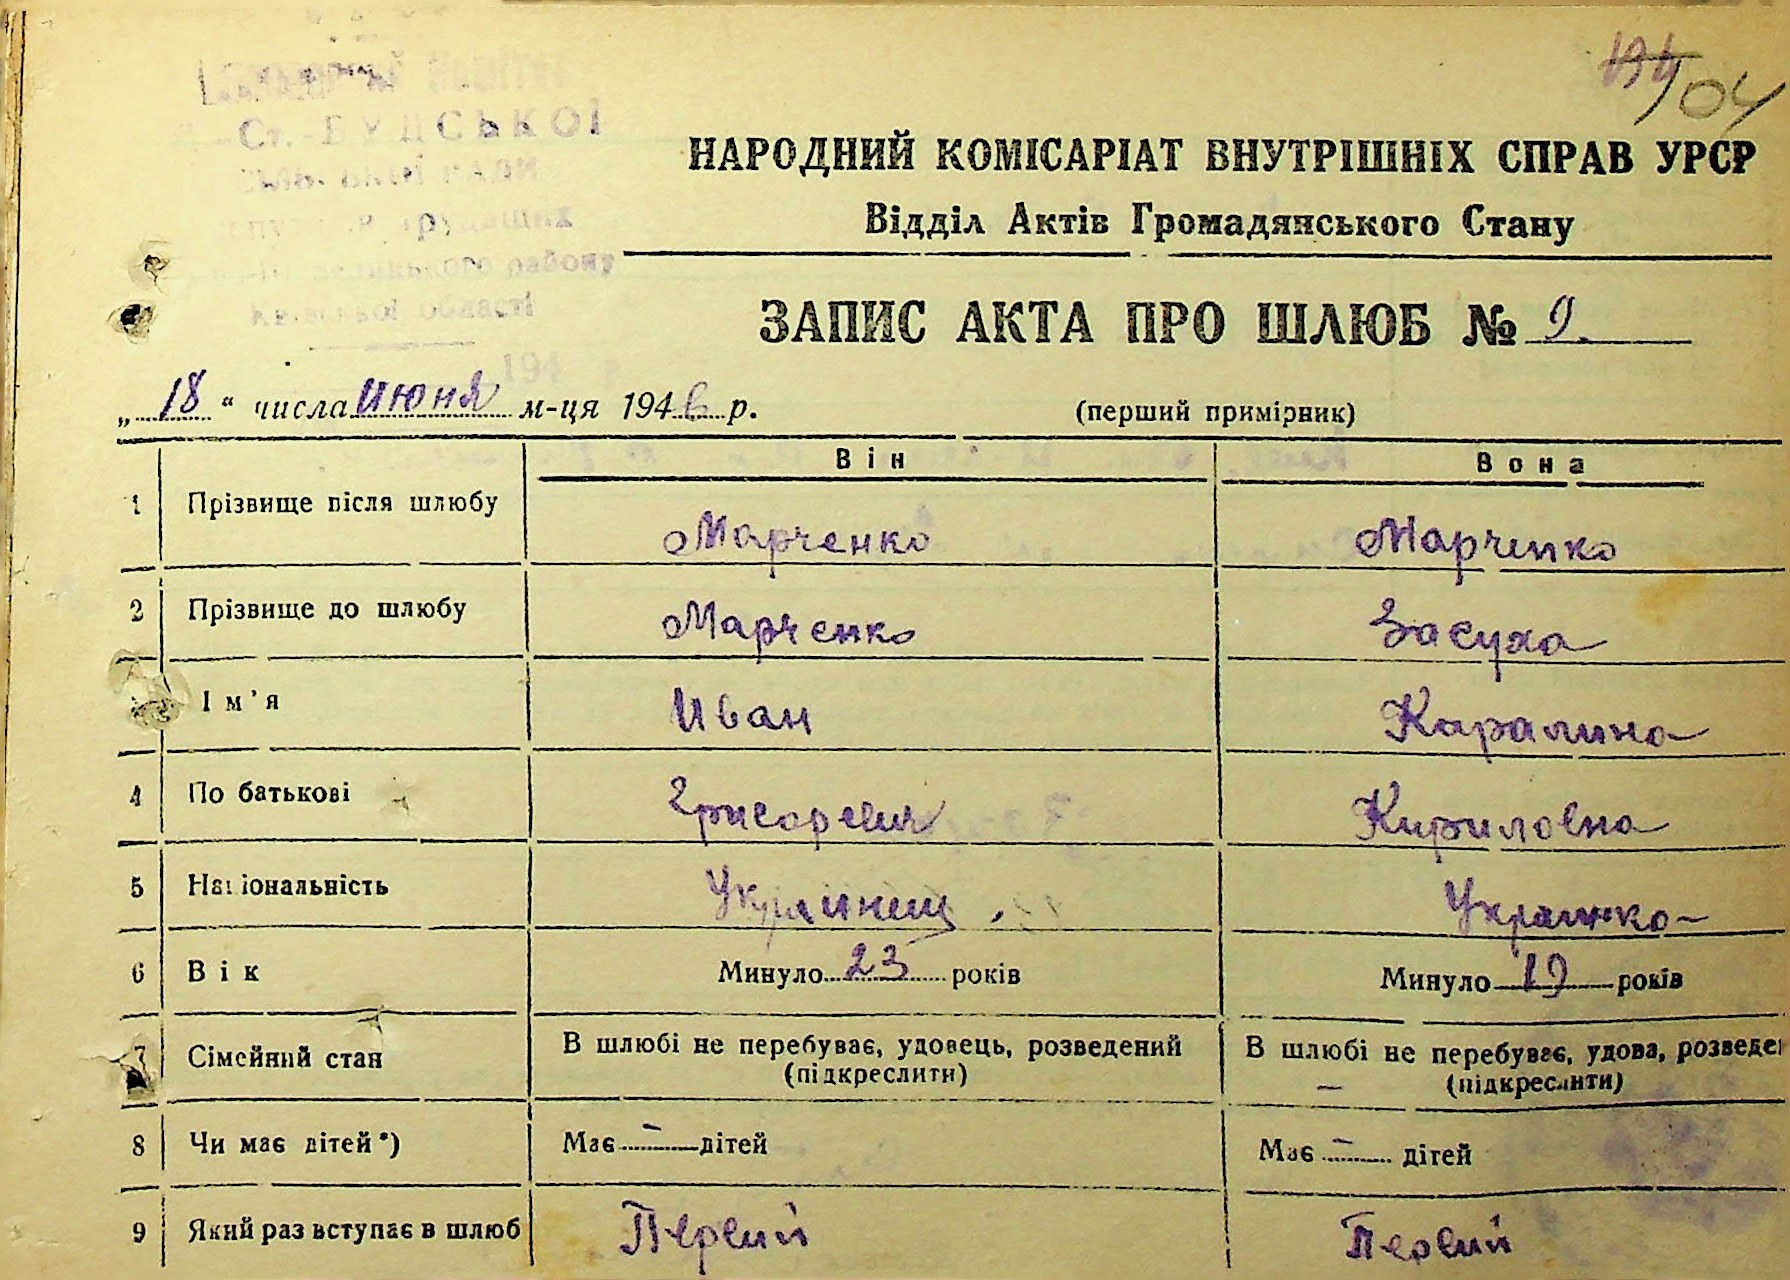 104
Ст.-БУДСЬКОЇ
району
області
194
НАРОДНИЙ КОМІСАРІАТ ВНУТРІШНІХ СПРАВ УРСР
Відділ Актів Громадянського Стану
ЗАПИС АКТА ПРО ШЛЮБ № 9.
„18“ числа июня м-ця 1946 р. (перший примірник)
Він Вона
1 Прізвище після шлюбу Марченко Марченко
2 Прізвище до шлюбу Марченко Засуха
Ім'я Иван Каралина
4 По батькові Григоревич Кириловна
5 Національність Украинец Украинка
6 Вік Минуло 23 років Минуло 19 років
7 Сімейний стан В шлюбі не перебуває, удовець, розведений В шлюбі не перебуває, удова, розведе
(підкреслити) (підкреслити)
8 Чи має дітей*) Має – дітей Має – дітей
9 Який раз вступає в шлюб Первий Первий